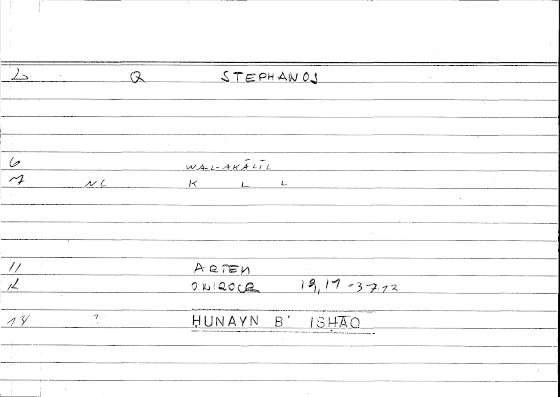 2 Q STEPHANOS
6 WAL-AKĀLĪL
7 NC K L L
11 ARTEM
12 ONIROCR 19,17-37,12
14 ? HUNAYN B' ISḤĀQ